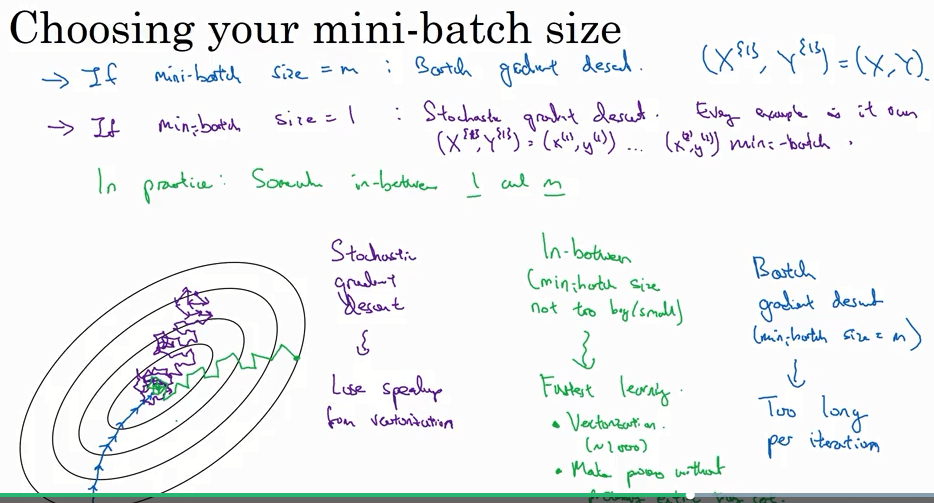 Choosing your mini-batch size
→ If mini-batch size = m : Batch gradient descent. (X^{1}, Y^{1}) = (X, Y).
→ If mini-batch size = 1 : Stochastic gradient descent. Every example is it own
(X^{1}, Y^{1}) = (x^(1), y^(1)) ... mini-batch.
In practice: Somewhere in-between 1 and m
Stochastic
gradient
descent
Lose speedup
from vectorization
In-between
(mini-batch size
not too big/small)
Fastest learning.
• Vectorization.
(~1000)
• Make progress without
Batch
gradient descent
(mini-batch size = m)
Too long
per iteration